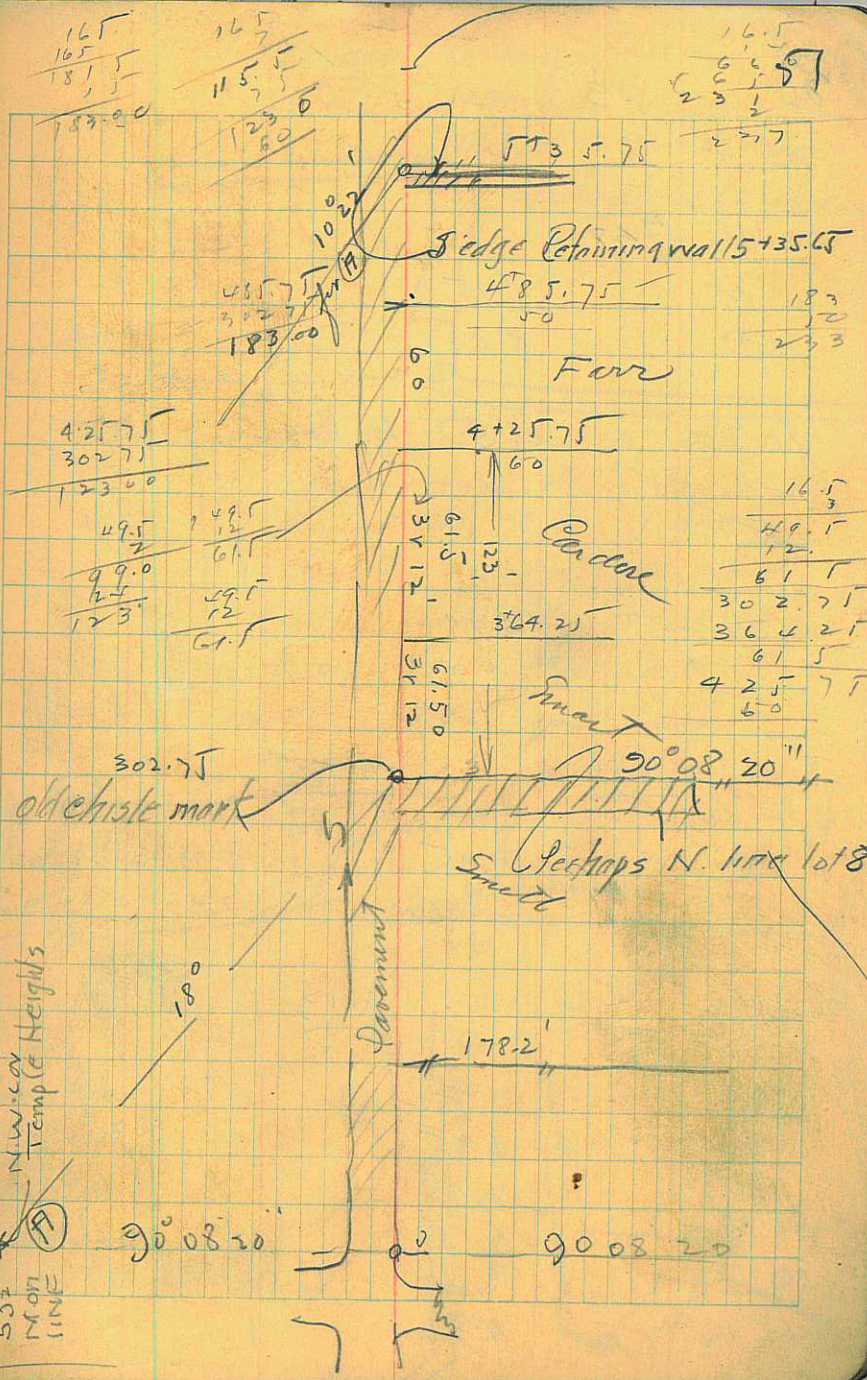 165
165
181 5
1 5
183.00
16 5
7
115.5
7 5
123 0
60
16.5
6 6 0
6 6 5
2 3 1
2
2 3 7
57
5+3 5.75
10° 22'
for A
S edge Retaining wall 5+35.65
485.75
302 75
183.00
4+85.75
50
183
50
233
60
Farr
425.75
302 75
123 00
4+25.75
60
49.5
2
99.0
25
123.
49.5
12
61.5
49.5
12
61.5
3r 12'
61.5'
123'
Cardone
16.5
3
49.5
12.
61 5
302.75
364.25
61 5
425 75
60
3+64.25
3r 12
61.50
Smart
302.75
old chisle mark
90° 08' 20"
Perhaps N. line lot 8
Smith
5
Pavement
180
178.2'
N.W. cor
Temple Heights
532
Mon
LINE
A
90° 08' 20"
0
90 08 20